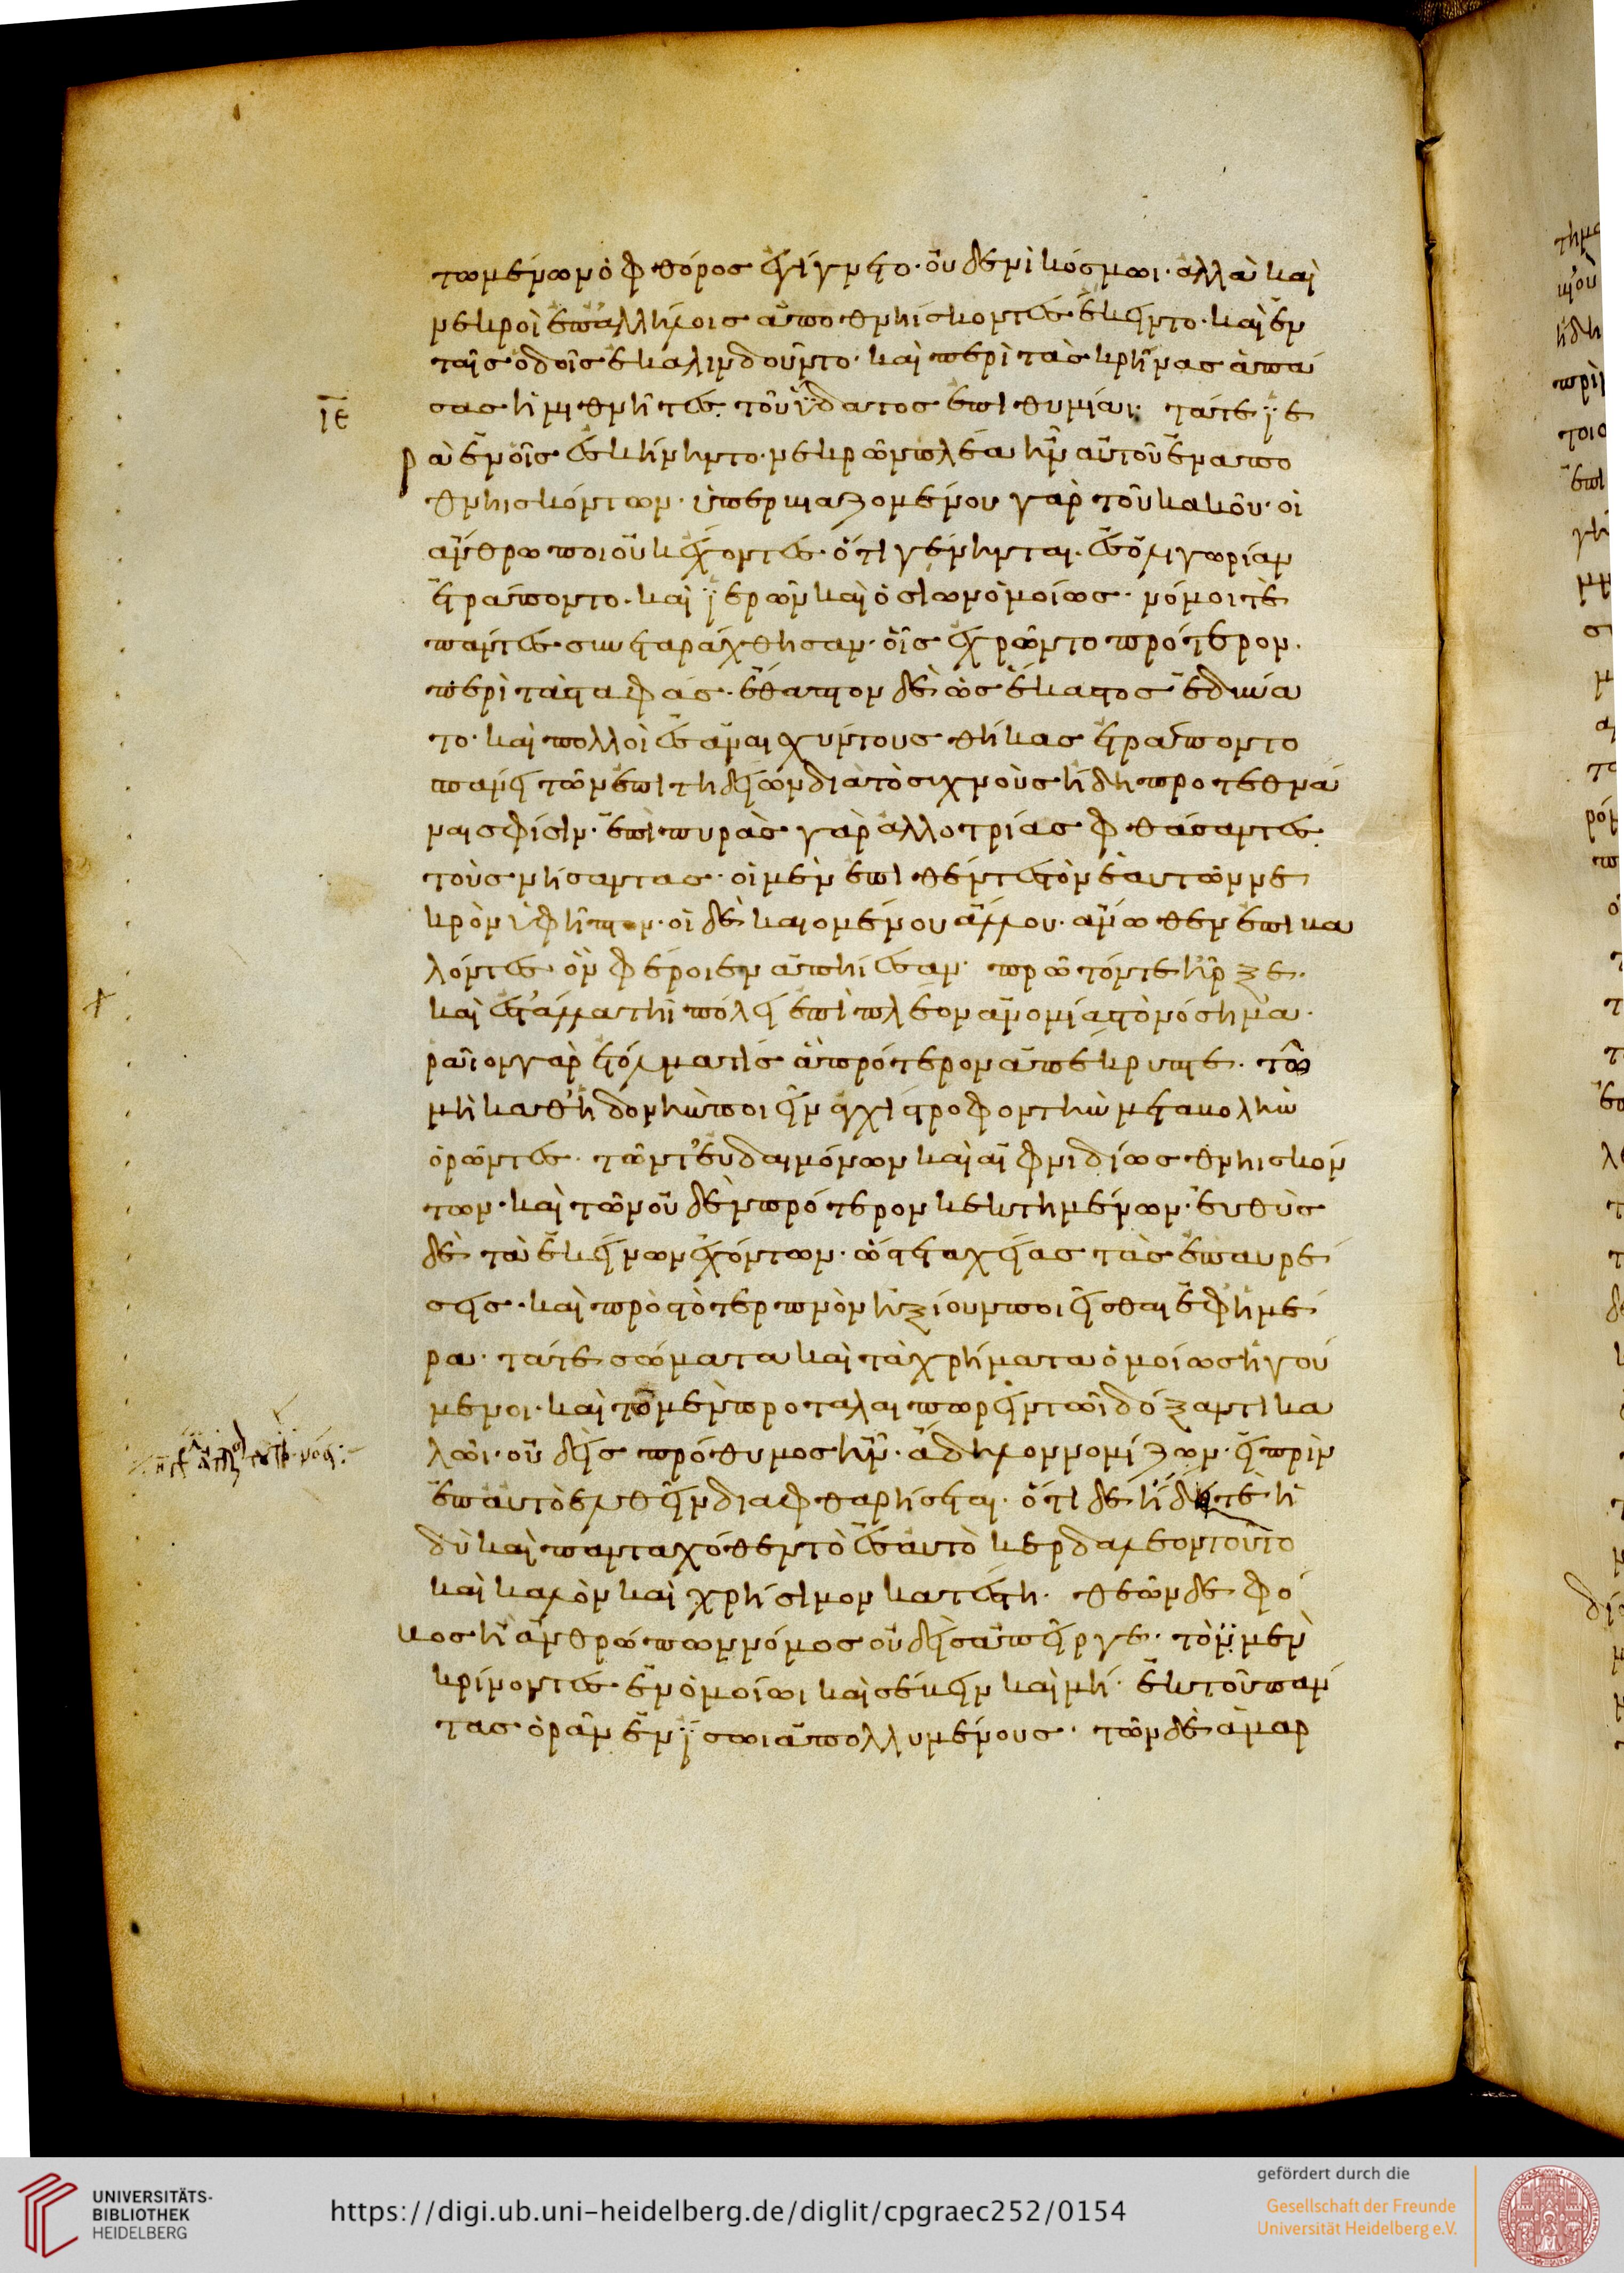 τωμένων ὁ φθόρος ἐγίγνετο· οὐδενὶ κόσμωι· ἀλλὰ καὶ
νεκροὶ ἐπ' ἀλλήλοις ἀποθνήισκοντες ἔκειντο· καὶ ἐν
ταῖς ὁδοῖς ἐκαλινδοῦντο· καὶ περὶ τὰς κρήνας ἁπά
ιε
σας ἡμιθνῆτες τοῦ ὕδατος ἐπιθυμίαι· τά τε ἱε
ρὰ ἐν οἷς ἐσκήνηντο· νεκρῶν πλέα ἦν αὐτοῦ ἐναπο
θνηισκόντων· ὑπερβιαζομένου γὰρ τοῦ κακοῦ· οἱ
ἄνθρωποι οὐκ ἔχοντες ὅτι γένηνται· ἐς ὀλιγωρίαν
ἐτράποντο· καὶ ἱερῶν καὶ ὁσίων ὁμοίως· νόμοι τε
πάντες συνεταράχθησαν· οἷς ἐχρῶντο πρότερον·
περὶ τὰς ταφάς· ἔθαπτον δὲ ὡς ἕκαστος ἐδύνα
το· καὶ πολλοὶ ἐς ἀναισχύντους θήκας ἐτράποντο
σπάνει τῶν ἐπιτηδείων διὰ τὸ συχνοὺς ἤδη προτεθνά
ναι σφίσιν· ἐπὶ πυρὰς γὰρ ἀλλοτρίας φθάσαντες
τοὺς νήσαντας· οἱ μὲν ἐπιθέντες τὸν ἑαυτῶν νε
κρὸν ὑφῆπτον· οἱ δὲ καιομένου ἄλλου· ἄνωθεν ἐπιβα
λόντες ὃν φέροιεν ἀπήιεσαν· πρῶτόν τε ἦρξε·
καὶ ἐς τἄλλα τῆι πόλει ἐπὶ πλέον ἀνομίας τὸ νόσημα·
ρᾶιον γὰρ ἐτόλμα τὶς ἃ πρότερον ἀπεκρύπτε· τοῦ
μὴ καθ' ἡδονὴν ποιεῖν ἀγχίστροφον τὴν μεταβολὴν
ὁρῶντες· τῶν τ' εὐδαιμόνων καὶ αἰφνιδίως θνηισκόν
των· καὶ τῶν οὐδὲν πρότερον κεκτημένων· εὐθὺς
δὲ τὰ ἐκείνων ἐχόντων· ὥστε ταχείας τὰς ἐπαυρέ
σεις· καὶ πρὸς τὸ τερπνὸν ἠξίουν ποιεῖσθαι ἐφήμε
ρα· τά τε σώματα καὶ τὰ χρήματα ὁμοίως ἡγού
μενοι· καὶ τὸ μὲν προταλαιπωρεῖν τῶι δόξαντι κα
λῶι· οὐδεὶς πρόθυμος ἦν· ἄδηλον νομίζων· εἰ πρὶν
ἐπ' αὐτὸ ἐλθεῖν διαφθαρήσεται· ὅτι δὲ ἤδη τὲ ἡ
δὺ καὶ πανταχόθεν τὸ ἐς αὐτὸ κερδαλέον τοῦτο
καὶ καλὸν καὶ χρήσιμον κατέστη· θεῶν δὲ φό
βος ἢ ἀνθρώπων νόμος οὐδεὶς ἀπεῖργε· τὸ μὲν
κρίνοντες ἐν ὁμοίωι καὶ σέβειν καὶ μή· ἐκ τοῦ πάν
τας ὁρᾶν ἐν ἴσωι ἀπολλυμένους· τῶν δὲ ἁμαρ
UNIVERSITÄTS-
BIBLIOTHEK
HEIDELBERG
https://digi.ub.uni-heidelberg.de/diglit/cpgraec252/0154
gefördert durch die
Gesellschaft der Freunde
Universität Heidelberg e.V.